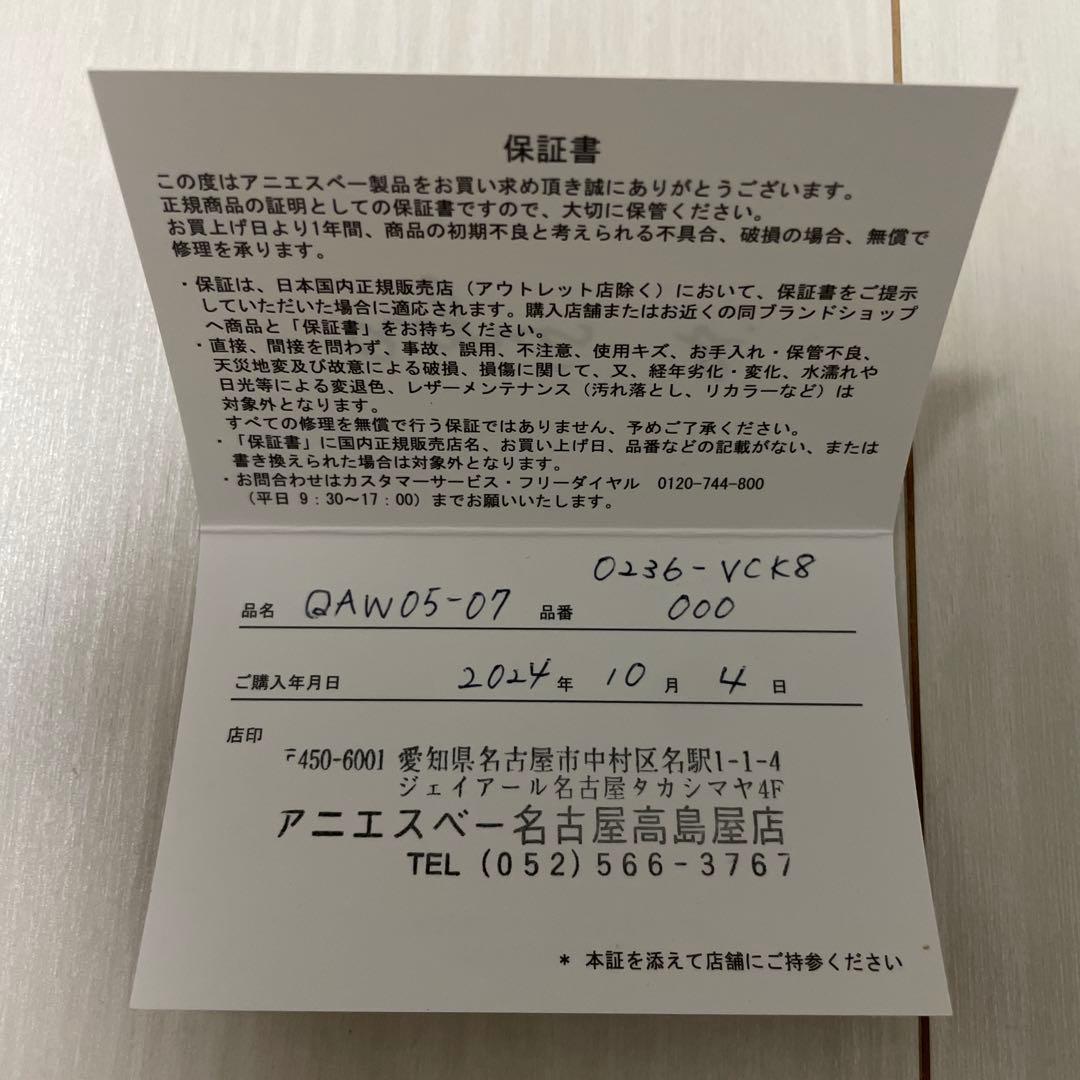 保証書
この度はアニエスベー製品をお買い求め頂き誠にありがとうございます。
正規商品の証明としての保証書ですので、大切に保管ください。
お買上げ日より1年間、商品の初期不良と考えられる不具合、破損の場合、無償で
修理を承ります。
・保証は、日本国内正規販売店（アウトレット店除く）において、保証書をご提示
していただいた場合に適応されます。購入店舗またはお近くの同ブランドショップ
へ商品と「保証書」をお持ちください。
・直接、間接を問わず、事故、誤用、不注意、使用キズ、お手入れ・保管不良、
天災地変及び故意による破損、損傷に関して、又、経年劣化・変化、水濡れや
日光等による変退色、レザーメンテナンス（汚れ落とし、リカラーなど）は
対象外となります。
すべての修理を無償で行う保証ではありません、予めご了承ください。
・「保証書」に国内正規販売店名、お買い上げ日、品番などの記載がない、または
書き換えられた場合は対象外となります。
・お問合わせはカスタマーサービス・フリーダイヤル 0120-744-800
（平日 9：30～17：00）までお願いいたします。
0236-VCK8
品名 QAW05-07 品番 000
ご購入年月日 2024年 10月 4日
店印
〒450-6001 愛知県名古屋市中村区名駅1-1-4
ジェイアール名古屋タカシマヤ4F
アニエスベー名古屋高島屋店
TEL (052) 566-3767
* 本証を添えて店舗にご持参ください